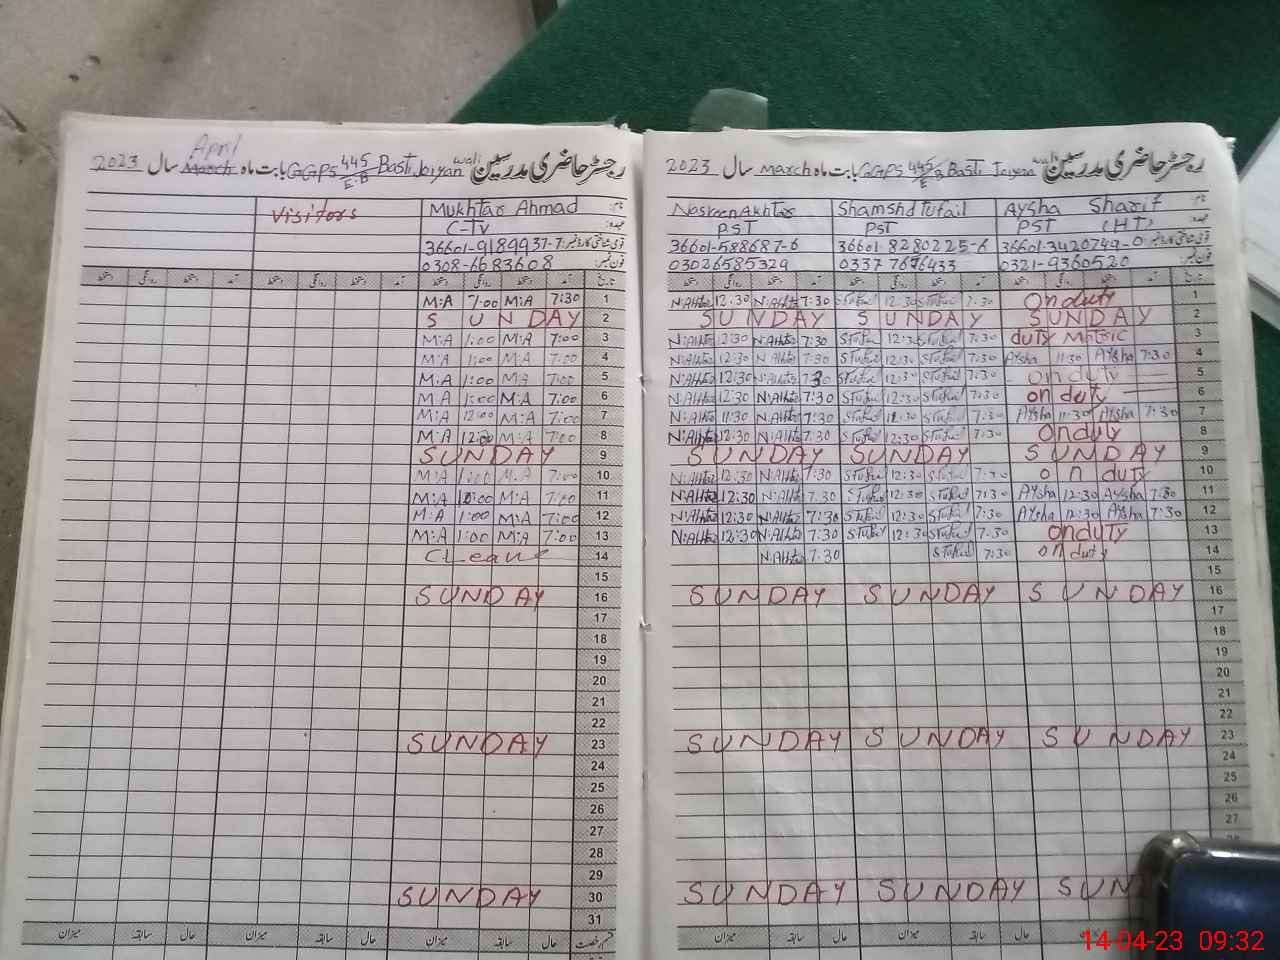 رجسٹر حاضری مدرسین GGPS 445/E.B Basti Joiyan wali بابت ماہ March April سال 2023
Visitors
Mukhtar Ahmad
C-IV
36601-9189937-7
0308-6683608
1 7:30 M:A 7:00 M:A
2 SUNDAY
3 7:00 M:A 1:00 M:A
4 7:00 M:A 1:00 M:A
5 7:00 M:A 1:00 M:A
6 7:00 M:A 1:00 M:A
7 7:00 M:A 12:00 M:A
8 7:00 M:A 12:00 M:A
9 SUNDAY
10 7:00 M:A 1:00 M:A
11 7:00 M:A M:A
12 7:00 M:A 1:00 M:A
13 7:00 M:A 1:00 M:A
14 CLeave
15
16 SUNDAY
17
18
19
20
21
22
23 SUNDAY
24
25
26
27
28
29
30 SUNDAY
31
حال سابقہ میزان حال سابقہ میزان حال سابقہ میزان
رجسٹر حاضری مدرسین GGPS 445/E.B Basti Joiyan wali بابت ماہ March سال 2023
Aysha Sharif Shamshd Tufail Nasreen Akhtar
PST (HT) PST PST
36601-3420749-0 36601-8280225-6 36601-588687-6
0321-9360520 0337 7676433 03026585329
1 On duty 7:30 STufail 12:30 STufail 7:30 N:Akhtar 12:30 N:Akhtar
2 SUNDAY SUNDAY SUNDAY
3 duty Matric 7:30 STufail 12:30 STufail 7:30 N:Akhtar 12:30 N:Akhtar
4 7:30 Aysha 11:30 Aysha 7:30 STufail 12:30 STufail 7:30 N:Akhtar 12:30 N:Akhtar
5 On duty 7:30 STufail 12:30 STufail 7:30 N:Akhtar 12:30 N:Akhtar
6 on duty 7:30 STufail 12:30 STufail 7:30 N:Akhtar 12:30 N:Akhtar
7 7:30 Aysha 11:30 Aysha 7:30 STufail STufail 7:30 N:Akhtar 11:30 N:Akhtar
8 On duty 7:30 STufail 12:30 STufail 7:30 N:Akhtar 12:30 N:Akhtar
9 SUNDAY SUNDAY SUNDAY
10 on duty 7:30 STufail 12:30 STufail 7:30 N:Akhtar 12:30 N:Akhtar
11 7:30 Aysha 12:30 Aysha 7:30 STufail 12:30 STufail 7:30 N:Akhtar 12:30 N:Akhtar
12 7:30 Aysha 12:30 Aysha 7:30 STufail 12:30 STufail 7:30 N:Akhtar 12:30 N:Akhtar
13 on duty 7:30 STufail 12:30 STufail 7:30 N:Akhtar 12:30 N:Akhtar
14 on duty 7:30 STufail 7:30 N:Akhtar
15
16 SUNDAY SUNDAY SUNDAY
17
18
19
20
21
22
23 SUNDAY SUNDAY SUNDAY
24
25
26
27
SUN SUNDAY SUNDAY
حال سابقہ میزان حال سابقہ میزان
14-04-23 09:32